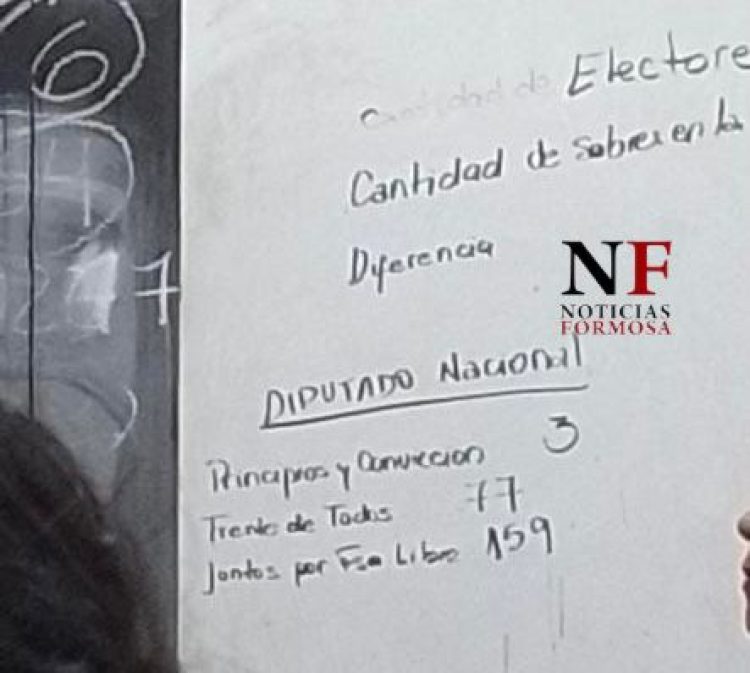 6
4
7
Cantidad de Electore
Cantidad de Sobres en la
Diferencia
NF
NOTICIAS
FORMOSA
DIPUTADO Nacional
Principios y Conviccion 3
Frente de Todos 77
Juntos por Fsa Libre 159